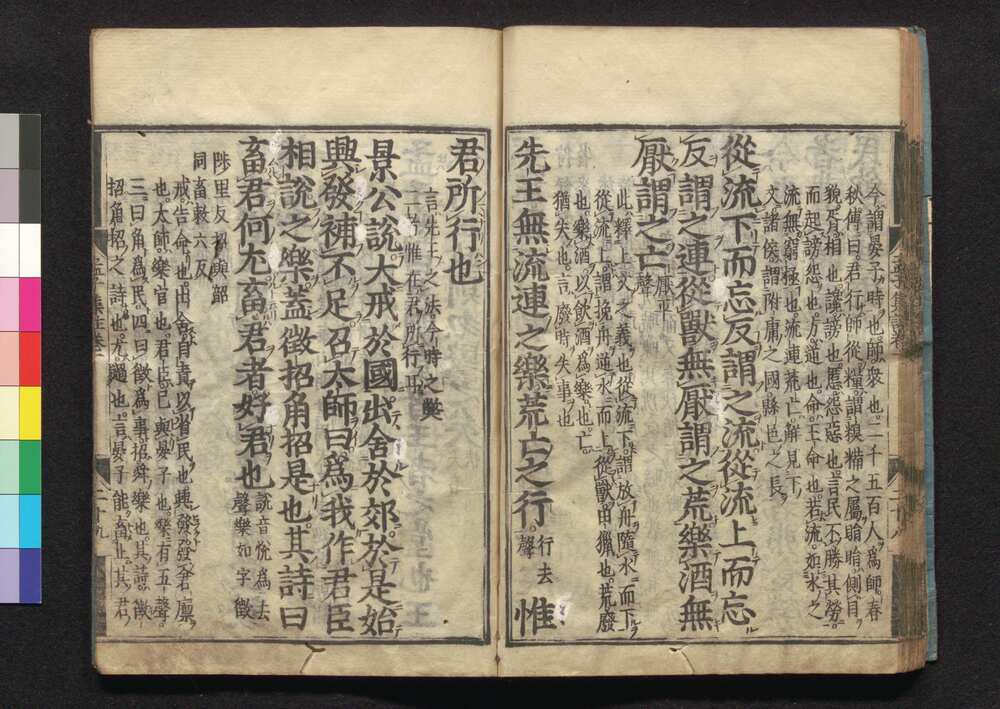 今謂晏子時也師衆也二千五百人爲師春
秋傳曰君行師從糧謂糗糒之屬睊睊側目
貌胥相也讒謗也慝怨惡也言民不勝其勞
而起謗怨也方逆也命王命也若流如水之
流無窮極也流連荒亡解見下
文諸侯謂附庸之國縣邑之長
從流下而忘反謂之流從流上而忘
反謂之連從獸無厭謂之荒樂酒無
厭謂之亡厭平聲
此釋上文之義也從流下謂放舟隨水而下
從流上謂挽舟逆水而上從獸田獵也荒廢
也樂酒以飲酒爲樂也亡
猶失也言廢時失事也
先王無流連之樂荒亡之行行去聲惟
君所行也
言先王之法今時之弊
二者惟在君所行耳
景公說大戒於國出舍於郊於是始
興發補不足召太師曰爲我作君臣
相說之樂蓋徵招角招是也其詩曰
畜君何尤畜君者好君也說音悅爲去聲樂如字徵
陟里反招與韶
同畜敕六反
戒告命也出舍自責以省民也興發發倉廩
也太師樂官也君臣已與晏子也樂有五聲
三曰角爲民四曰徵爲事招舜樂也其詩徵
招角招之詩也尤過也言晏子能畜止其君
二十九